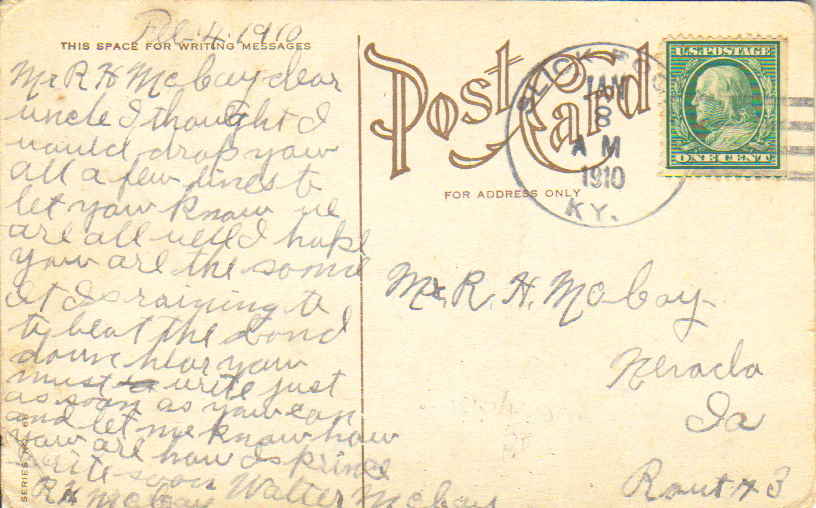 Feb 4 1910
THIS SPACE FOR WRITING MESSAGES
Mr R H McCoy dear
uncle I thought I
would drop yaw
all a few lines to
let yaw know we
are all well I hope
yaw are the some
it Is raining to
ty beat the bond
down hear yaw
must write just
as soon as yaw can
and let me know how
yaw are how Is prince
write soon Walter McCoy
RH McCoy
SERIES NO.
Post Card
FOR ADDRESS ONLY
SLICK ROCK
JAN
8
A M
1910
KY.
U.S. POSTAGE
ONE CENT
Mr. R. H. McCoy
Nevada
Ia
Rout # 3